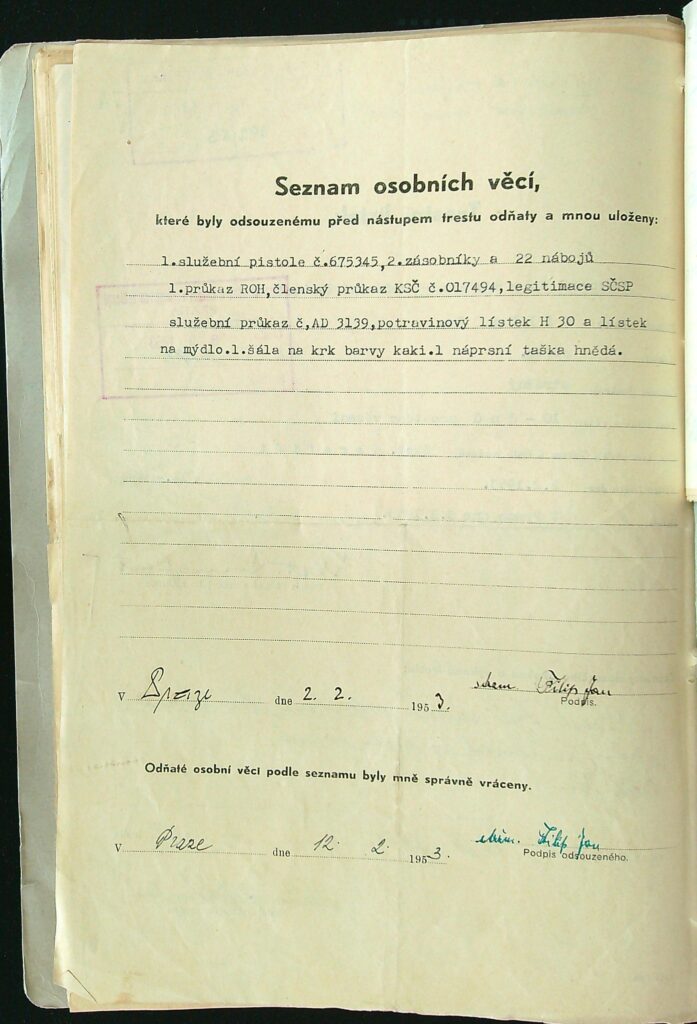 Seznam osobních věcí,
které byly odsouzenému před nástupem trestu odňaty a mnou uloženy:
1.služební pistole č.675345,2.zásobníky a 22 nábojů
1.průkaz ROH,členský průkaz KSČ č.017494,legitimace SČSP
služební průkaz č,AD 3139,potravinový lístek H 30 a lístek
na mýdlo.1.šála na krk barvy kaki.1 náprsní taška hnědá.
V Praze dne 2. 2. 1953. Filip Jan
Podpis.
Odňaté osobní věci podle seznamu byly mně správně vráceny.
V Praze dne 12. 2. 1953. Filip Jan
Podpis odsouzeného.